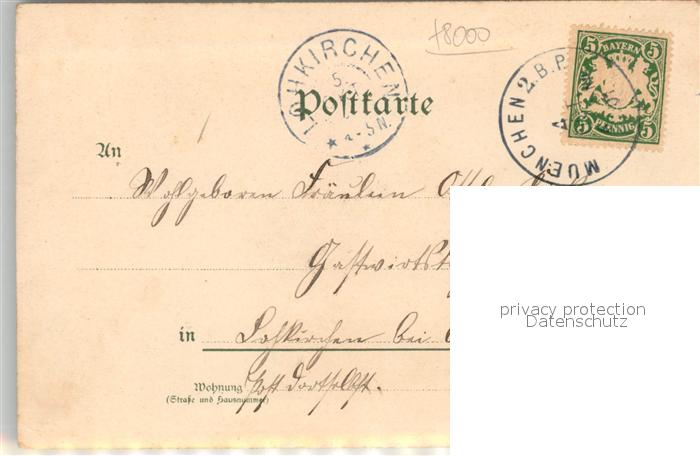 +8000
LOHKIRCHEN
5.
4-5N.
MUENCHEN 2.B.P.
5 BAYERN 5
5 PFENNIG 5
Postkarte
An
Wohlgeboren Fräulein
Gastwirtst
in Lohkirchen bei
Wohnung Post dortselbst.
(Straße und Hausnummer)
privacy protection
Datenschutz